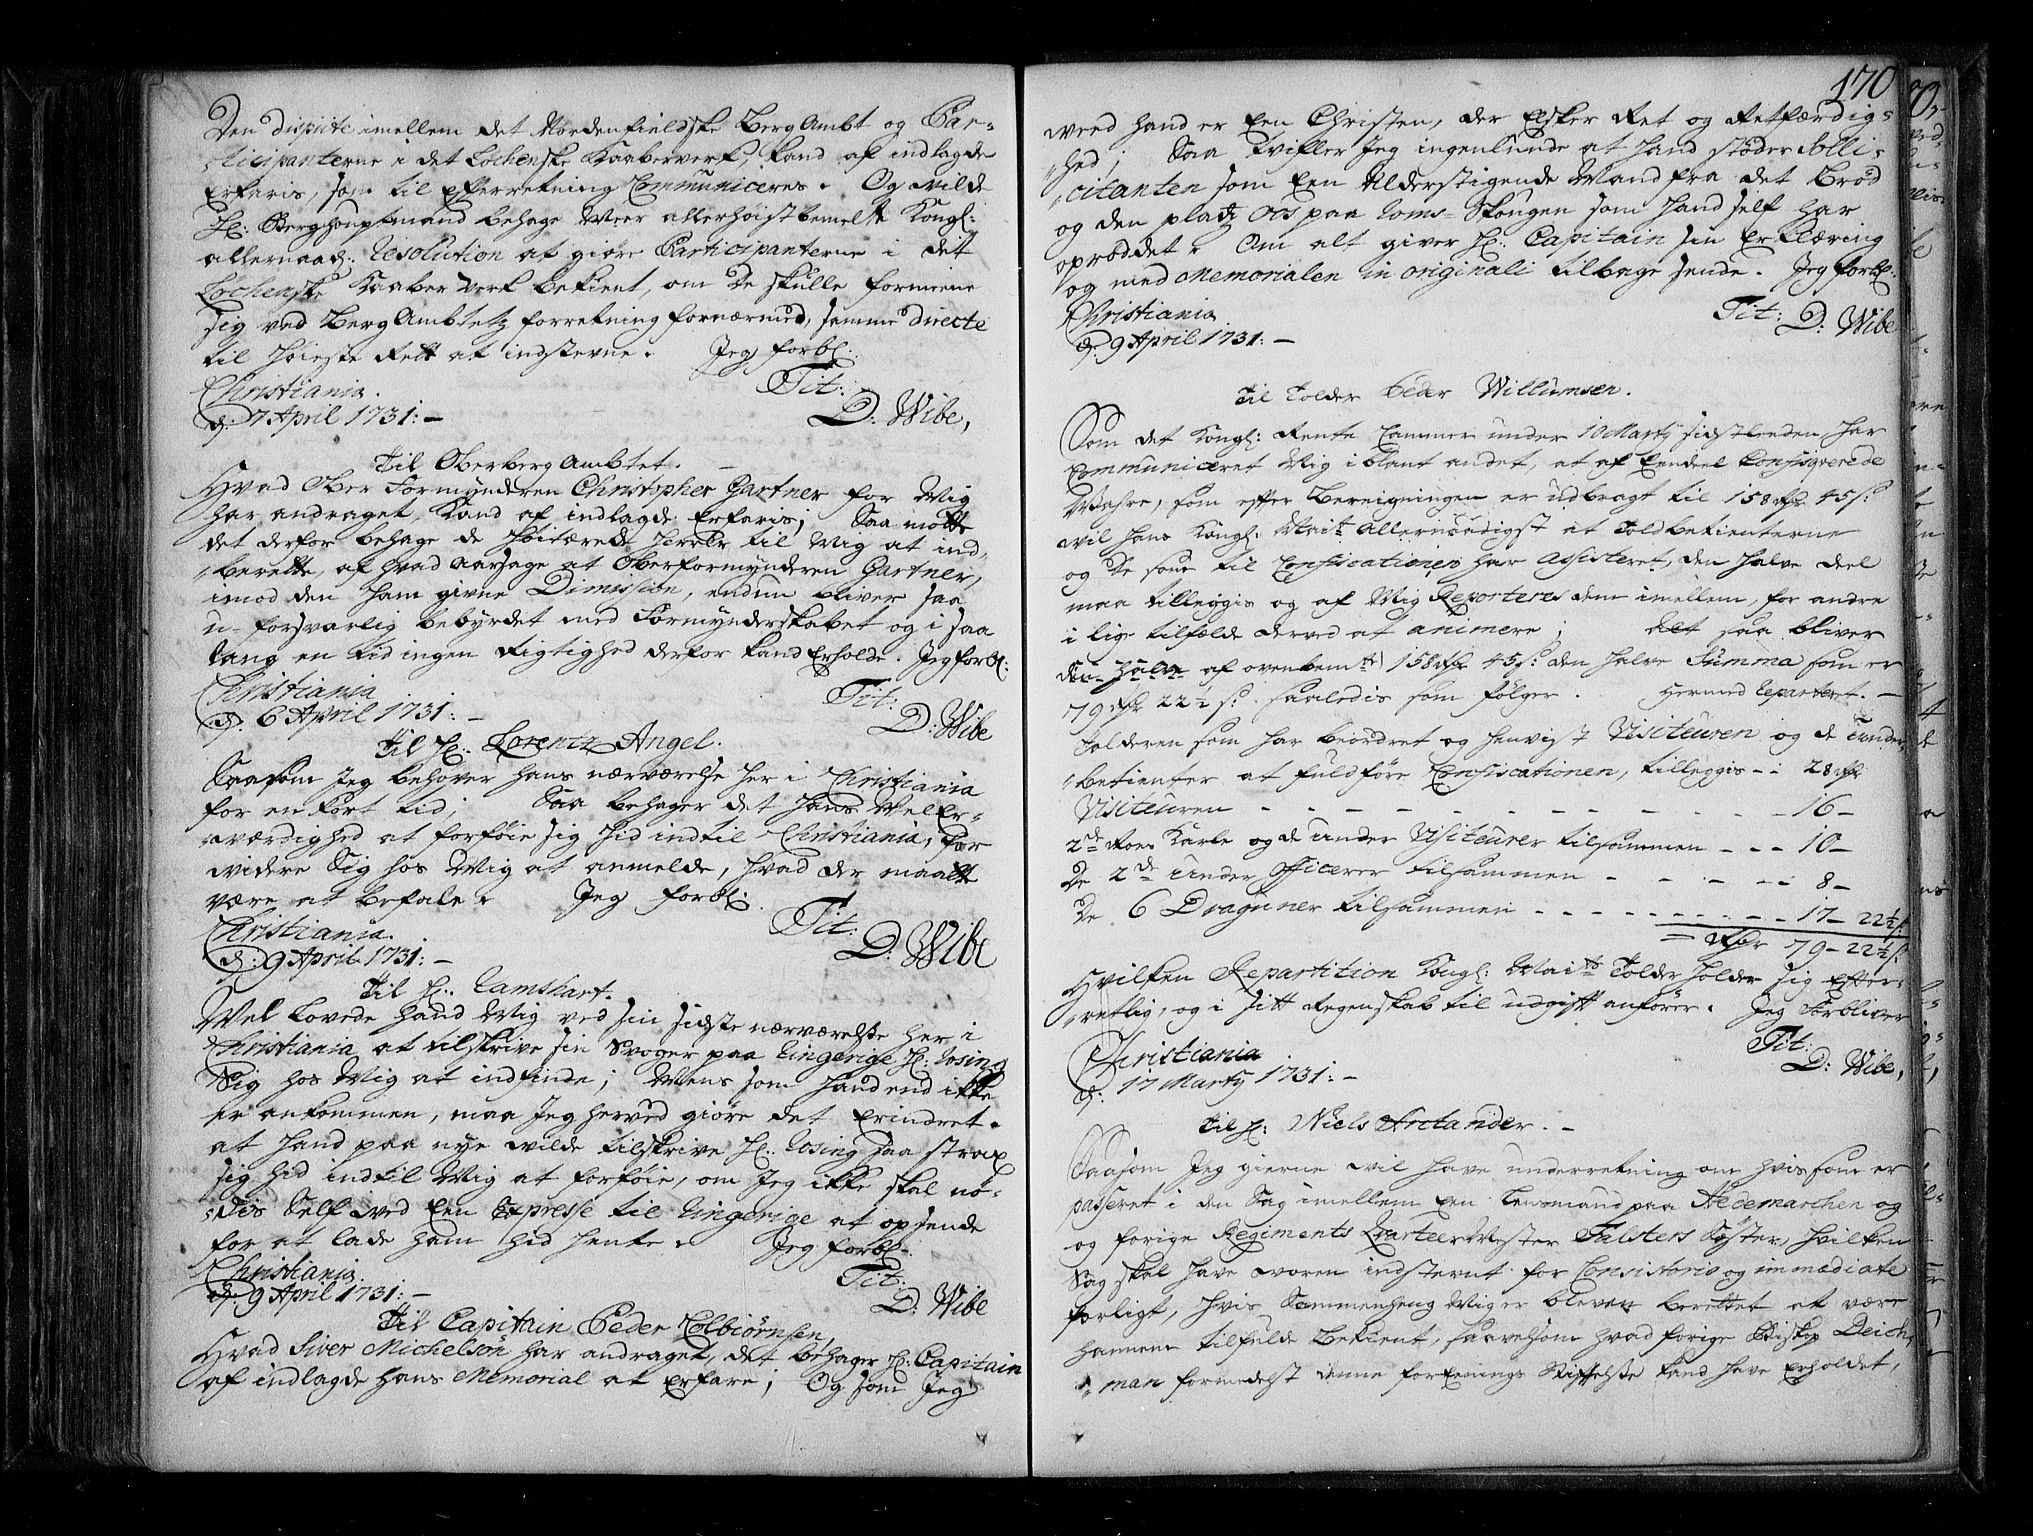 Den dispute imellem det Nordenfieldske BergAmbt og Par-
ticipanterne i det Lochenske Kaaberverk, kand af indlagde
Erfaris, som til efterretning Communiceres. Og vilde
Hr: Berghoupfmand behage Meer allerhøistbemelte Kongl:
allernaad: Resolution at giøre Participanterne i det
Lochenske Kaaber Verk bekient, om De skulle formeene
sig ved BergAmbtetz forretning fornærmed, samme directe
til Høieste Rett at indstevne. Jeg forbl:
Christiania. Tit:
d: 7 April 1731:— D: Wibe,
Til OberbergAmbtet. —
Hvad Ober Formynderen Christopher Gartner for Mig
har andraget, Kand af indlagde Erfaris; Saa motte
det derfor behage de Høitærede Herrer til Mig at ind-
berette, af hvad aarsage at Oberformynderen Gartner,
imod den ham givne Dimission, endnu bliver saa
u-forsvarlig bebyrdet med Formynderskabet og i saa
lang en tid ingen Rigtighed derfor kand Erholde. Jeg forbl:
Christiania Tit:
d. 6 April 1731:— D: Wibe
Til Hr: Lorentz Angel.
Saasom Jeg behøver hans nærværelse her i Christiania
for en kort tid; Saa behager det Hans VelEr-
værdighed at forføie sig Hid indtil Christiania, for
videre Sig hos Mig at anmelde, hvad der maatte
være at befale. Jeg forbl:
Christiania. Tit:
d: 9 April 1731:— D: Wibe
Til Hr: Ramshart.
Vel Lovede hand Mig ved sin sidste nærværelse her i
Christiania at tilskrive sin Svoger paa Ringerige Hr: Rosing
Sig hos Mig at indfinde; Mens som hand end ikke
er ankommen, maa Jeg herved giøre det Erindret.
at Hand paa nye vilde tilskrive Hr: Rosing saa strax
sig hid indtil Mig at forføie, om Jeg ikke skal nø-
dis Self ved Een Expresse til Ringerige at opsende
for at lade ham hid hente. Jeg forbl:
Christiania. Tit:
d: 9 April 1731:— D: Wibe
Til Capitain Peder Colbiørnsen,
Hvad Siver Michelsøn har andraget, det behager Hr: Capitain
af indlagde hans Memorial at Erfare; Og som Jeg
170
veed hand er Een Christen, der Elsker Ret og Retfærdig-
hed; Saa tvifler Jeg ingenlunde at hand støder Solli-
citanten som Een Alderstigende Mand fra det brød
og den platz Aas paa Roms-Skougen som Hand self har
oprøddet. Om alt giver Hr: Capitain sin Erklæring
og med Memorialen in originali tilbage sende. Jeg forbl:
Christiania Tit:
d: 9 April 1731:— D: Wibe
Til Tolder Peder Willumsen.
Som det Kongl: Rente Cammer under 10 Marty sidstleeden har
Communiceret Mig iblant andet, at af Eendeel Confisqverede
Wahre, som efter beregningen er udbragt til 158 Rdr 45 s:
vil Hans Kongl: Mait: allernaadigst at Toldbetienterne
og De som til Confiscationen har assisteret, den halve deel
maa tilleggis og af Mig Reparteres dem imellem, for andre
i lige tilfælde derved at animere; saa bliver
af ovenbemte 158 Rdr 45 s: den halve Summa som er
79 Rdr 22½ s: saaledis som følger. Hermed Reparteret. —
Tolderen som har beordret og henvist Visiteuren og de Under
betienter at fuldføre Confiscationen, tilleggis — : 28 Rdr
Visiteuren - - - - - - - - 16 —
2de Roes Karle og de Under Visiteurer tilsammen - - - 10 —
De 2de Under Officerer tilsammen - - - - - 8 —
De 6 Dragouner tilsammen - - - - - - - - 17 — 22½ s:
= Rdr 79 — 22½ s:
Hvilken Repartition Kongl: Maits Tolder Holder sig efter-
rettlig, og i sitt Regenskab til udgift anfører. Jeg Forbliver
Christiania Tit:
d: 17 Marty 1731:— D: Wibe,
Til Hr: Niels Arctander. —
Saasom Jeg gierne vil have underretning om hvis som er
passeret i den Sag imellem Een Lensmand paa Hedemarchen og
og forige Regiments QvarteerMester Falsters Søster, hvilken
Sag skal have voren indstevnt for Consistorio og immediate
forligt, hvis Sammenheng Mig er bleven berettet at være
Hannem tilfulde bekient, saavelsom hvad forige Biskop Deich-
man formedelst denne foreenings Stiftelse kand have Erholdet,